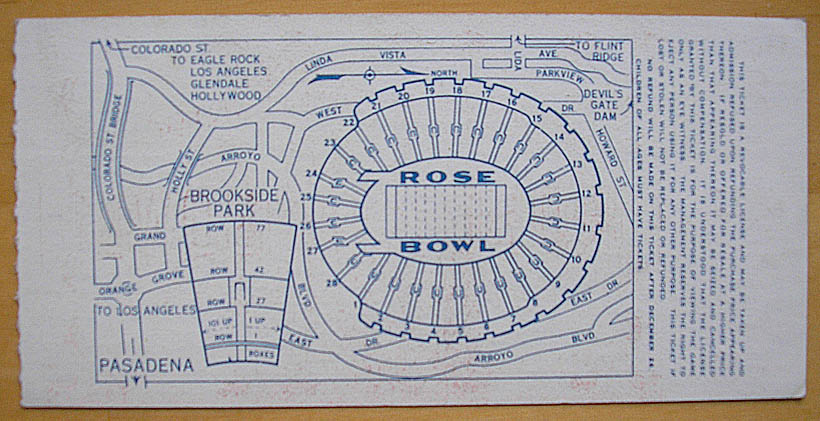 COLORADO ST.
TO EAGLE ROCK
LOS ANGELES
GLENDALE
HOLLYWOOD
LINDA VISTA AVE.
TO FLINT
RIDGE
PARKVIEW
NORTH
DEVIL'S
GATE
DAM
WEST DR
HOWARD ST
COLORADO ST BRIDGE
HOLLY ST
ARROYO BLVD
BROOKSIDE
PARK
GRAND
ORANGE GROVE
TO LOS ANGELES
PASADENA
ROW 77
ROW 42
ROW 27
101 UP 1 UP
ROW 1
BOXES
ROSE
BOWL
1
2
3
4
5
6
7
8
9
10
11
12
13
14
15
16
17
18
19
20
21
22
23
24
25
26
27
28
EAST DR
EAST DR
ARROYO BLVD
THIS TICKET IS A REVOCABLE LICENSE AND MAY BE TAKEN UP AND
ADMISSION REFUSED UPON REFUNDING THE PURCHASE PRICE APPEARING
THEREON. IF RESOLD OR OFFERED FOR RESALE AT A HIGHER PRICE
THAN THAT APPEARING THEREON IT MAY BE SEIZED AND CANCELLED
WITHOUT COMPENSATION. IT IS UNDERSTOOD THAT THE LICENSE
GRANTED BY THIS TICKET IS FOR THE PURPOSE OF VIEWING THE GAME
ONLY AS AN EYE WITNESS. THE MANAGEMENT RESERVES THE RIGHT TO
EJECT ANY PERSON USING IT FOR ANY OTHER PURPOSE. THIS TICKET IF
LOST OR STOLEN WILL NOT BE REPLACED OR REFUNDED.
NO REFUND WILL BE MADE ON THIS TICKET AFTER DECEMBER 26.
CHILDREN OF ALL AGES MUST HAVE TICKETS